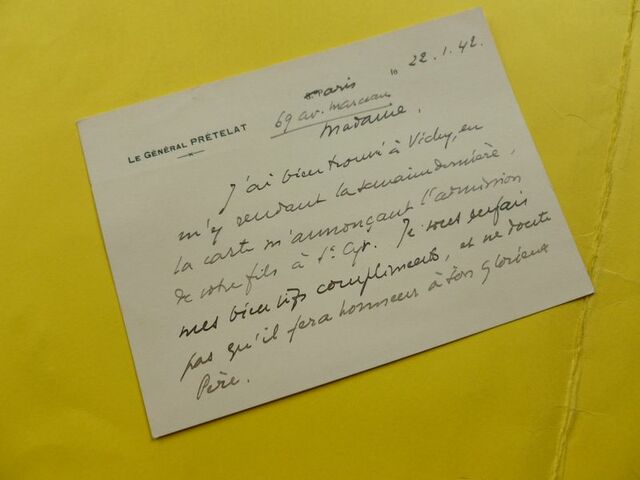 Paris le 22.1.42.
69 av. Marceau
LE GÉNÉRAL PRÉTELAT
Madame,
J'ai bien trouvé à Vichy, en
m'y rendant la semaine dernière,
la carte m'annonçant l'admission
de votre fils à St Cyr. Je vous en fais
mes bien vifs compliments, et ne doute
pas qu'il fera honneur à son glorieux
Père.